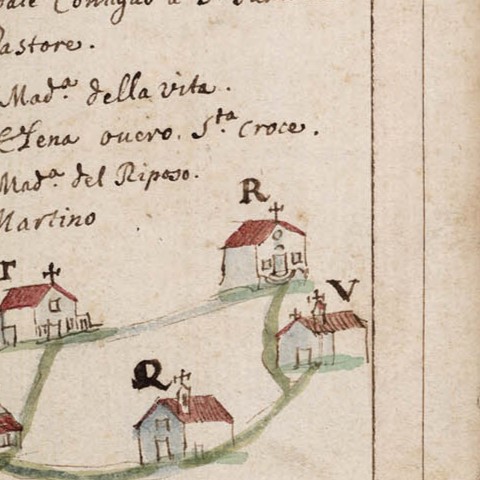 astore.
Mad.ª della vita.
Elena ouero. S.ta Croce.
Mad.ª del Riposo.
Martino
R
T
V
Q